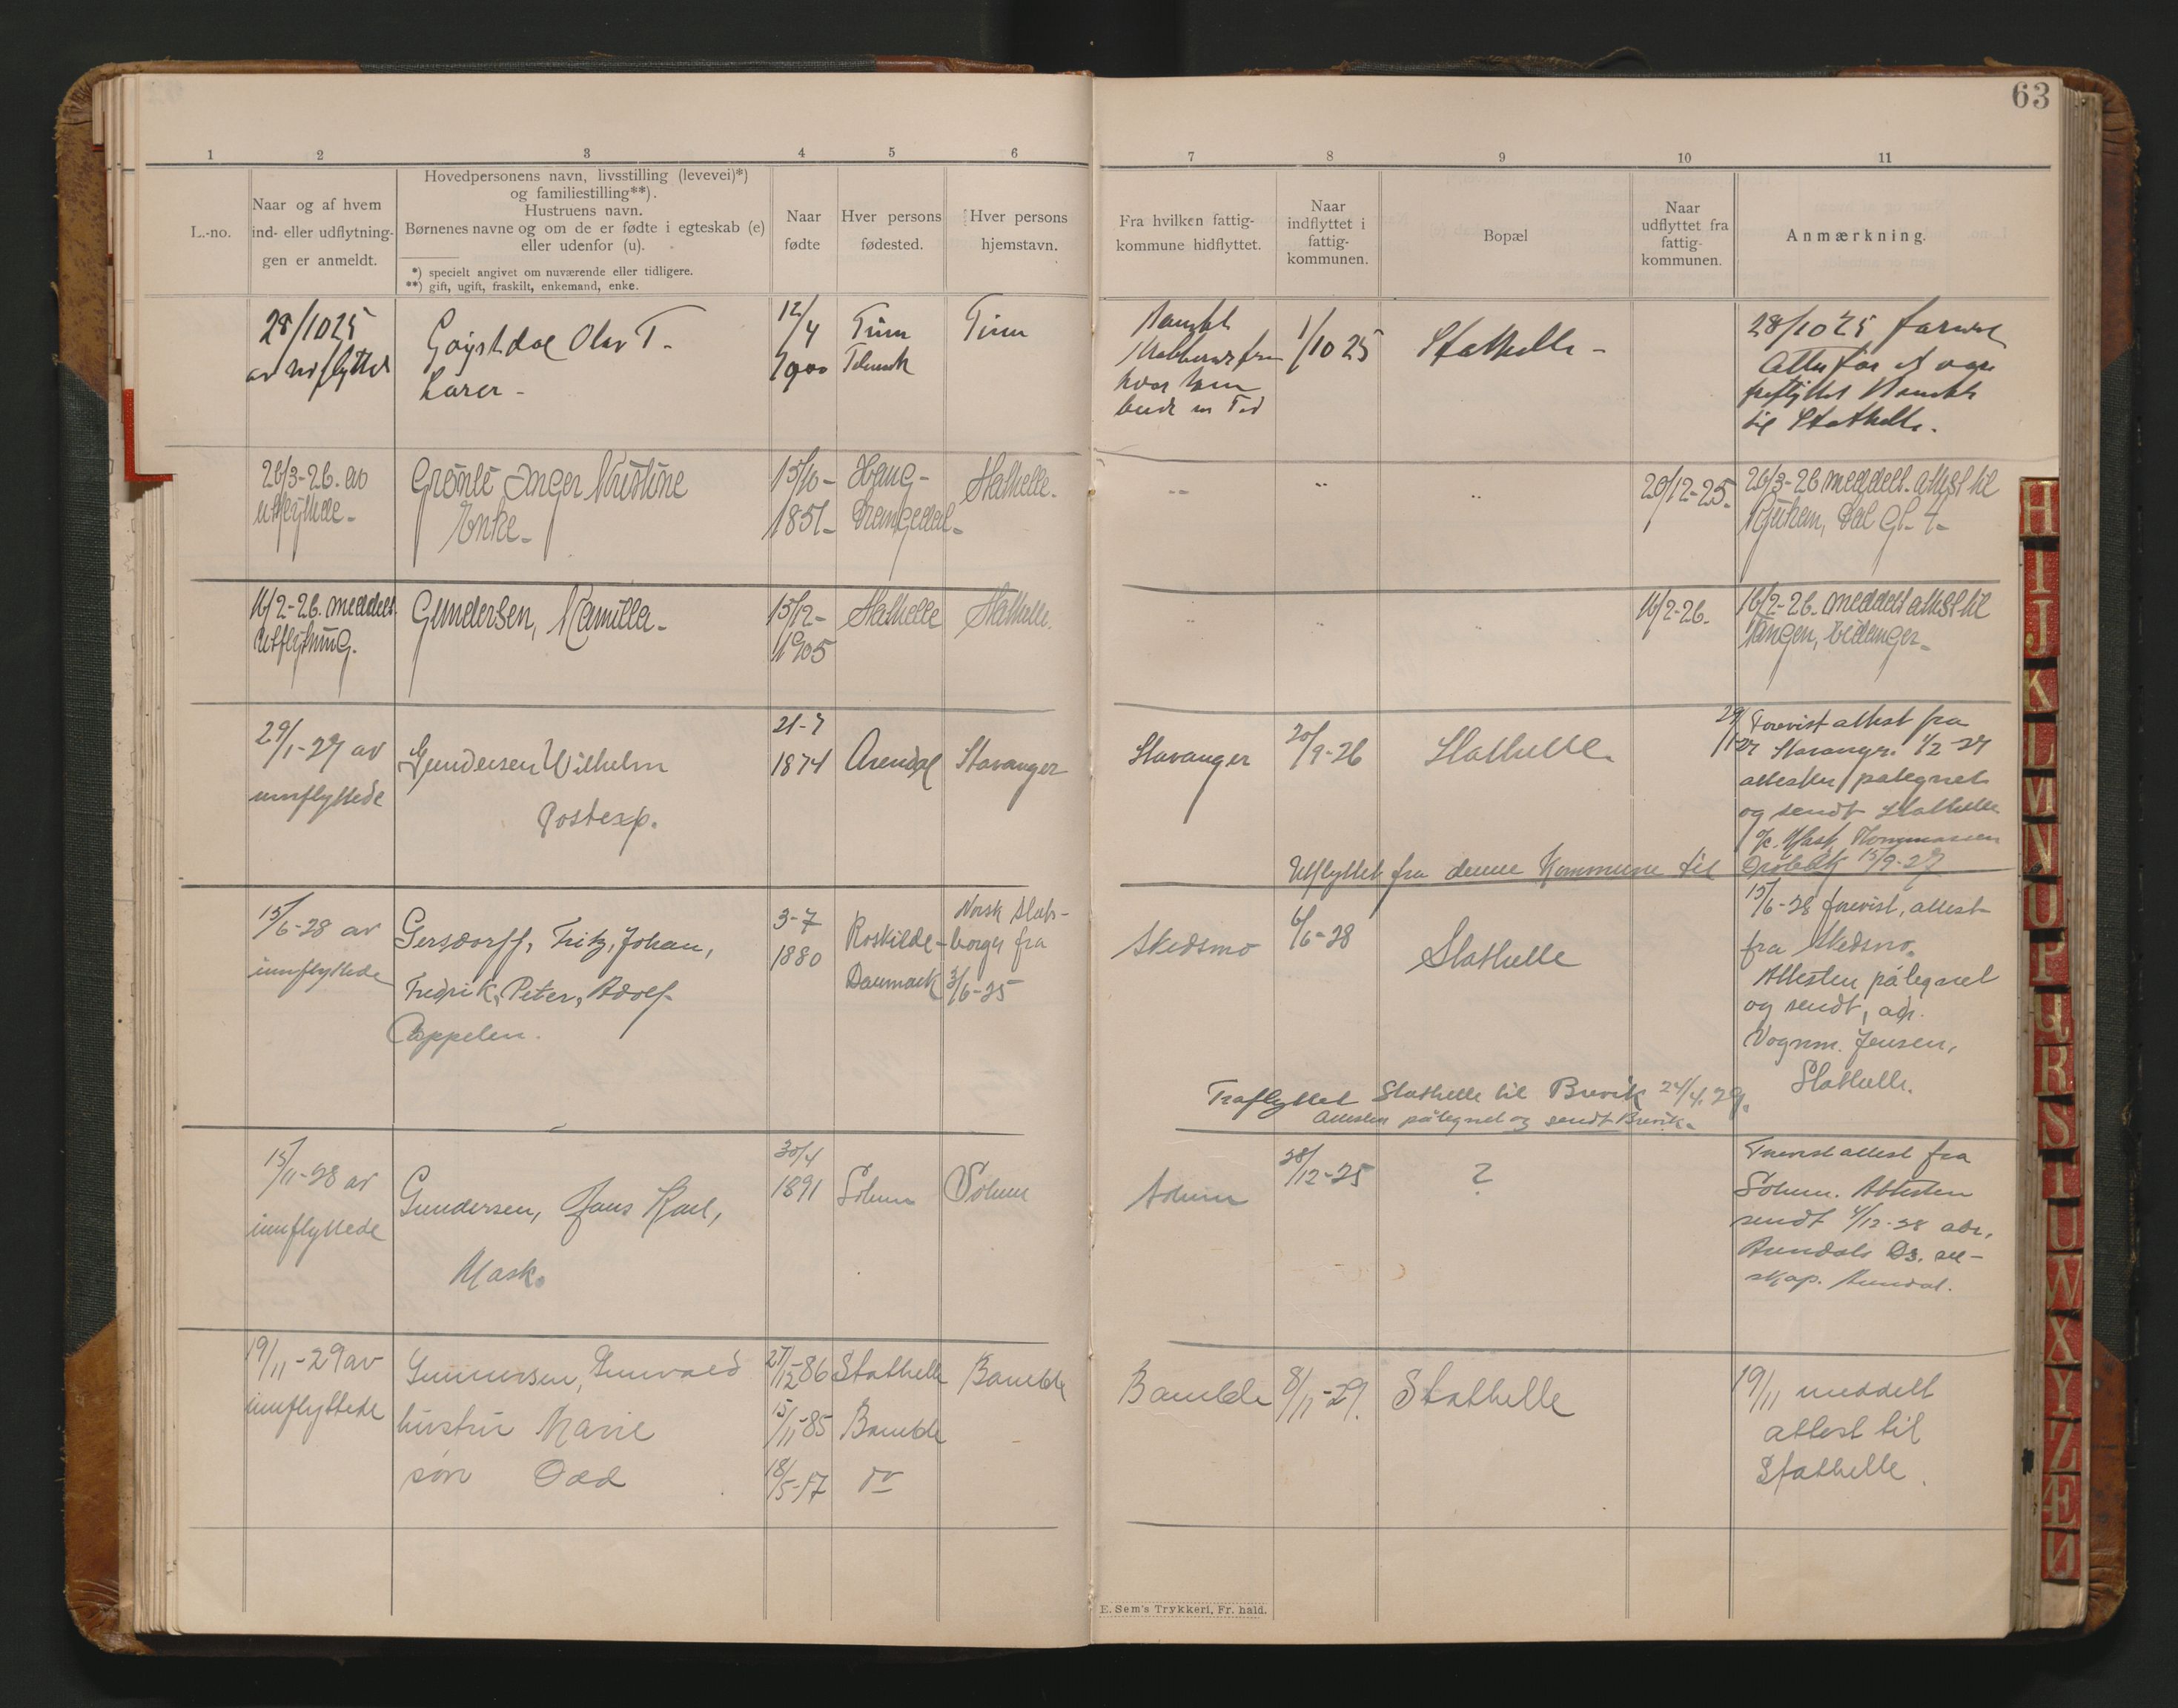 63
1 2 3 4 5 6 7 8 9 10 11
L.-no.
Naar og af hvem
ind- eller udflytnin-
gen er anmeldt.
Hovedpersonens navn, livsstilling (levevei)*)
og familiestilling**).
Hustruens navn.
Børnenes navne og om de er fødte i egteskab (e)
eller udenfor (u).
*) specielt angivet om nuværende eller tidligere.
**) gift, ugift, fraskilt, enkemand, enke.
Naar
fødte
Hver persons
fødested.
Hver persons
hjemstavn.
Fra hvilken fattig-
kommune hidflyttet.
Naar
indflyttet i
fattig-
kommunen.
Bopæl
Naar
udflyttet fra
fattig-
kommunen.
Anmærkning.
28/10 25
av
Olav T.
Lærer -
12/4
1900
Tinn
Telemark
Tinn
Bamble
hvor han
1/10 25
Stathelle -
28/10 25
Bamble
til Stathelle.
26/3-26. av
utflyttede -
Grönli Inger Kristine
Enke -
15/10 -
1851 -
Haug -
Drangedal -
Stathelle.
20/12-25.
26/3-26 meddelt attest til
Rjukan, Dal
16/2-26. meddelt
Utflytning.
Gundersen, Kamilla -
15/12 -
1905
Stathelle
Stathelle.
16/2-26.
16/2-26. meddelt attest til
Tangen, Eidanger -
29/1-27 av
innflyttede
Gundersen Wilhelm
Postexp.
21-7
1874
Arendal
Stavanger
Stavanger
20/9-26
Stathelle.
29/1-27 Forevist attest fra
Stavanger. 1/2 27
attesten påtegnet
og sendt Stathelle
Thommassen
Utflyttet fra denne Kommune til Drøbak 15/9-27
15/6-28 av
innflyttede
Gersdorff, Fritz, Johan,
Fredrik, Peter, Adolf
Cappelen.
3-7
1880
Roskilde -
Danmark
Norsk stats-
borger fra
3/6-25
Skedsmo
6/6-28
Stathelle
15/6-28 forevist, attest
fra Skedsmo.
Attesten påtegnet
og sendt, adr.
Vognm. Jensen,
Stathelle.
Fraflyttet Stathelle til Brevik 24/4.29.
Attesten påtegnet og sendt Brevik -
15/11-28 av
innflyttede
Gundersen, Hans Karl,
Mask.
30/4
1891
Solum
Solum
Solum
28/12-25
?
Forevist attest fra
Solum. Attesten
sendt 4/12-28 adr.
Arendals Ds. sel-
skap. Arendal.
19/11-29 av
innflyttede
Gunnersen, Gunvald
hustru Marie
sön Odd
27/12-86
15/11-85
18/5-17
Stathelle
Bamble
do
Bamble
Bamble
8/11-29.
Stathelle
19/11 meddelt
attest til
Stathelle.
E. Sem's Trykkeri, Fr. hald.
H
I
J
K
L
M
N
O
P
Q
R
S
T
U
W
X
Y
Z
Æ
Ø